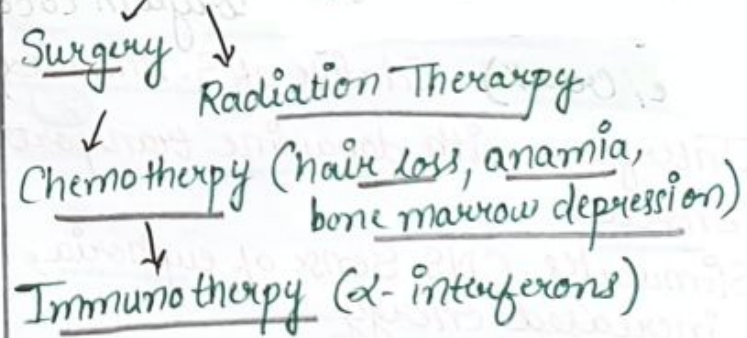 Surgery
Radiation Therarpy
Chemotherpy (hair loss, anamia,
bone marrow depression)
Immunotherpy (α- interferons)